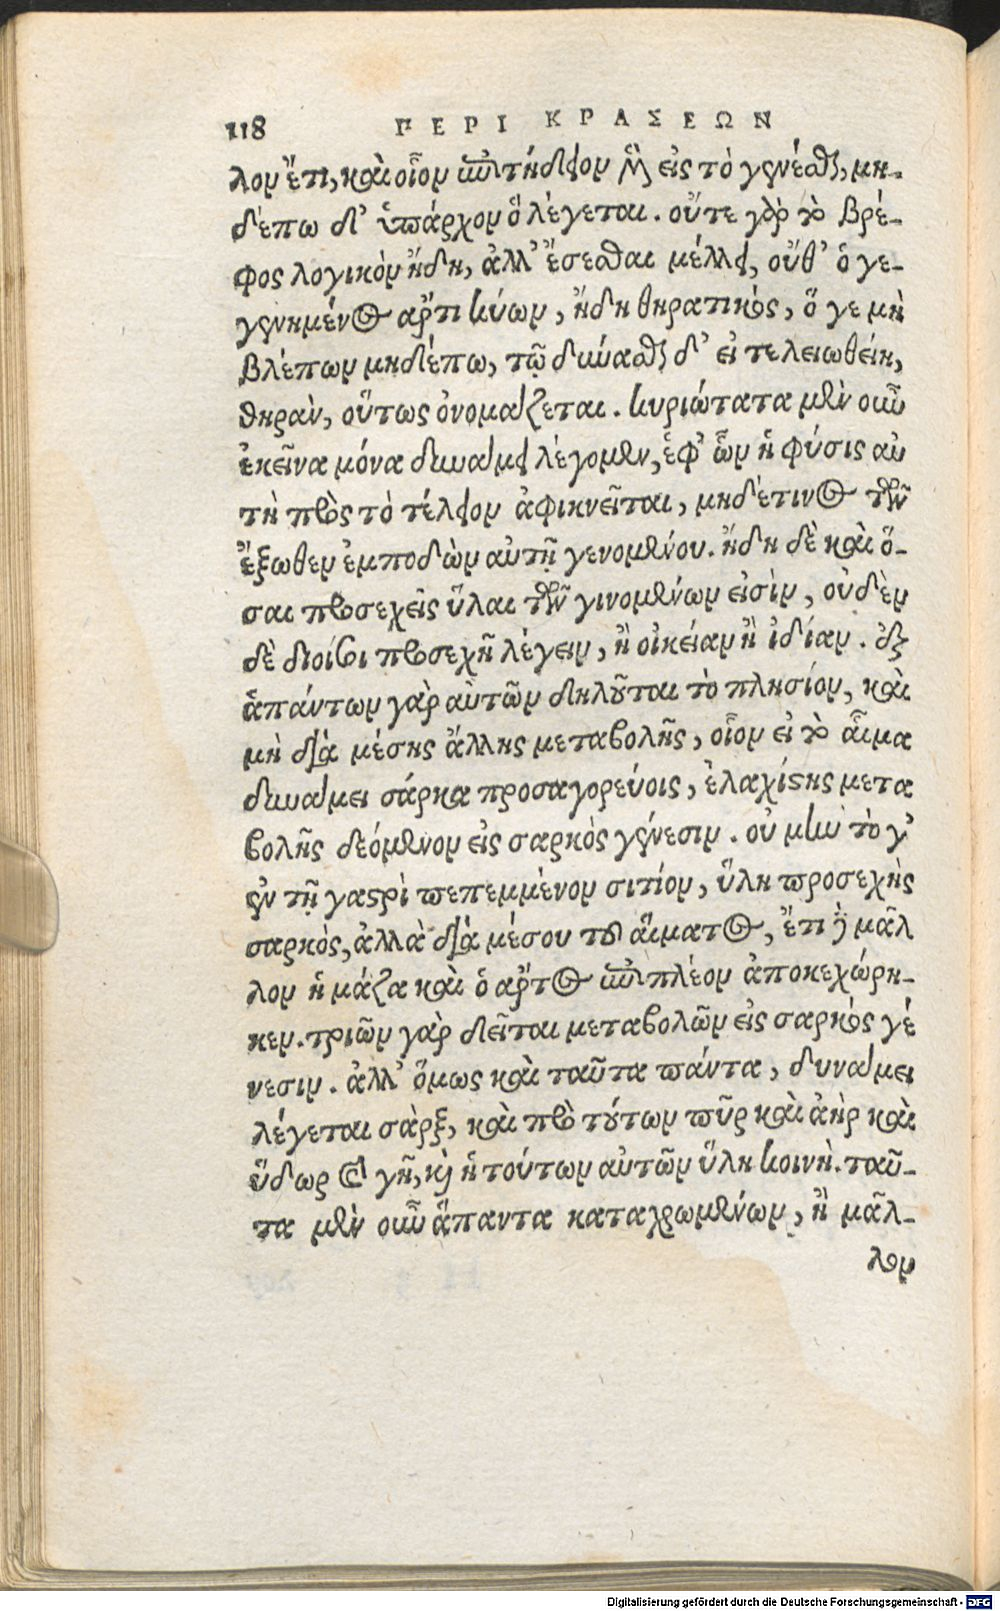 118 ΠΕΡΙ ΚΡΑΣΕΩΝ
λον ἔτι, καὶ οἷον ἐπιτήδειον ὂν εἰς τὸ γενέσθαι, μη-
δέπω δ’ ὑπάρχον ὃ λέγεται. οὔτε γὰρ τὸ βρέ-
φος λογικὸν ἤδη, ἀλλ’ ἔσεσθαι μέλλει, οὔθ’ ὁ γε-
γενημένος ἄρτι κύων, ἤδη θηρατικὸς, ὅ γε μὴ
βλέπων μηδέπω, τῷ δύνασθαι δ’ εἰ τελειωθείη,
θηρᾶν, οὕτως ὀνομάζεται. κυριώτατα μὲν οὖν
ἐκεῖνα μόνα δυνάμει λέγομεν, ἐφ’ ὧν ἡ φύσις αὐ
τὴ πρὸς τὸ τέλειον ἀφικνεῖται, μηδέτινος τῶν
ἔξωθεν ἐμποδὼν αὐτῇ γενομένου. ἤδη δὲ καὶ ὅ-
σαι προσεχεῖς ὗλαι τῶν γινομένων εἰσὶν, οὐδὲν
δὲ διοίσει προσεχῆ λέγειν, ἢ οἰκείαν ἢ ἰδίαν. ἐξ
ἁπάντων γὰρ αὐτῶν δηλοῦται τὸ πλησίον, καὶ
μὴ διὰ μέσης ἄλλης μεταβολῆς, οἷον εἰ τὸ αἷμα
δυνάμει σάρκα προσαγορεύοις, ἐλαχίστης μετα
βολῆς δεόμενον εἰς σαρκὸς γένεσιν. οὐ μὴν τὸ γ’
ἐν τῇ γαστρὶ πεπεμμένον σιτίον, ὕλη προσεχὴς
σαρκὸς, ἀλλὰ διὰ μέσου τοῦ αἵματος, ἔτι δὲ μᾶλ
λον ἡ μάζα καὶ ὁ ἄρτος ἐπιπλέον ἀποκεχώρη-
κεν. τριῶν γὰρ δεῖται μεταβολῶν εἰς σαρκὸς γέ
νεσιν. ἀλλ’ ὅμως καὶ ταῦτα πάντα, δυνάμει
λέγεται σὰρξ, καὶ πρὸ τούτων πῦρ καὶ ἀὴρ καὶ
ὕδωρ καὶ γῆ, καὶ ἡ τούτων αὐτῶν ὕλη κοινὴ. ταῦ-
τα μὲν οὖν ἅπαντα καταχρωμένων, ἢ μᾶλ-
λον
Digitalisierung gefördert durch die Deutsche Forschungsgemeinschaft - DFG